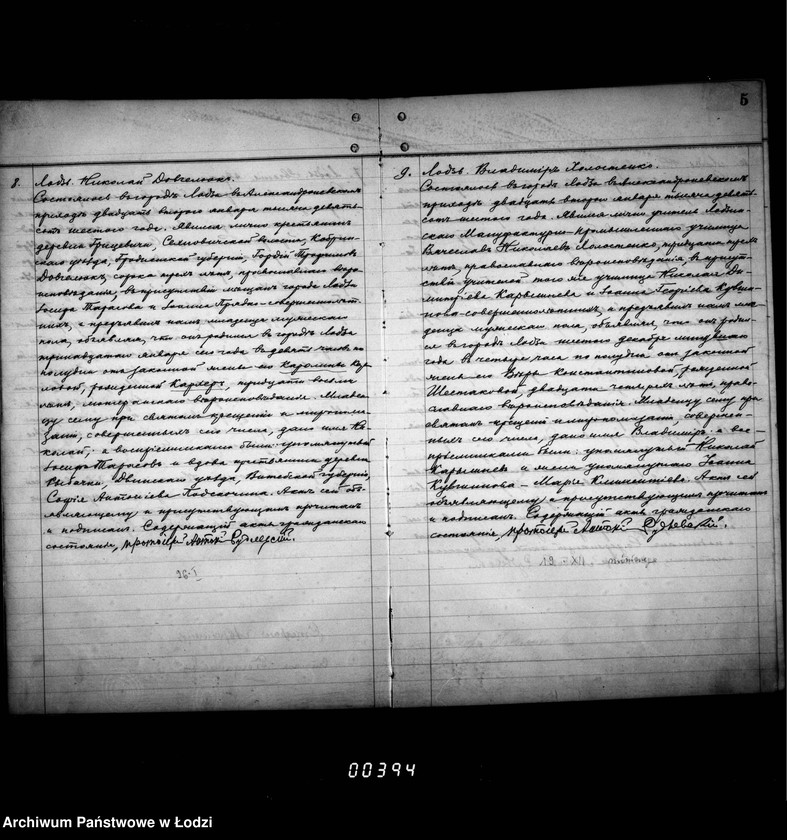 5
8. Лодзь. Николай Довгелюкъ.
Состоялось въ городѣ Лодзи въ Александроневскомъ
приходѣ двадцать второго января тысяча девять-
сотъ шестого года. Явился лично крестьянинъ
деревни Грицевичи, волости, Кобрин-
скаго уѣзда, Гродненской губерніи, Гордій
Довгелюкъ, сорока трехъ лѣтъ, православнаго вѣро-
исповѣданія, въ присутствіи мѣщанъ города Лодзи
Іосифа Тарасова и Іоанна совершеннолѣт-
нихъ, и предъявилъ намъ младенца мужескаго
пола, объявляя, что онъ родился въ городѣ Лодзи
тринадцатаго января сего года въ девять часовъ по
полудни отъ законной жены его Каролины Кар-
ловой, рожденной, тридцати восьми
лѣтъ, лютеранскаго вѣроисповѣданія. Младен-
цу сему при святомъ крещеніи и миропома-
заніи, совершенныхъ сего числа, дано имя Ни-
колай, а воспріемниками были: упомянутый
Іосифъ Тарасовъ и вдова крестьянина деревни
Двинскаго уѣзда, Витебской губерніи,
Софія Антоніева. Актъ сей объ-
являющему и присутствующимъ прочитанъ
и подписанъ. Содержащій акты гражданскаго
состоянія, протоіерей Антоній Рудлевскій.
9. Лодзь. Владиміръ Холостенко.
Состоялось въ городѣ Лодзи въ Александроневскомъ
приходѣ двадцать второго января тысяча девять-
сотъ шестого года. Явился лично учитель Лодзин-
скаго Мануфактурно-промышленнаго училища
Вячеславъ Николаевъ Холостенко, тридцати трехъ
лѣтъ, православнаго вѣроисповѣданія, въ присут-
ствіи учителей того же училища Николая Ди-
митріева Карышева и Іоанна Георгіева Кувши-
нова совершеннолѣтнихъ, и предъявилъ намъ мла-
денца мужескаго пола, объявляя, что онъ родил-
ся въ городѣ Лодзи шестого декабря минувшаго
года въ четыре часа по полудни отъ законной
жены его Вѣры Константиновой, рожденной
Шестаковой, двадцати четырехъ лѣтъ, право-
славнаго вѣроисповѣданія. Младенцу сему при
святомъ крещеніи и миропомазаніи, совершен-
ныхъ сего числа, дано имя Владиміръ, а вос-
пріемниками были: упомянутый Николай
Карышевъ и жена упомянутаго Іоанна
Кувшинова – Марія Климентіева. Актъ сей
объявляющему и присутствующимъ прочитанъ
и подписанъ. Содержащій акты гражданскаго
состоянія, протоіерей Антоній Рудлевскій.
00394
Archiwum Państwowe w Łodzi